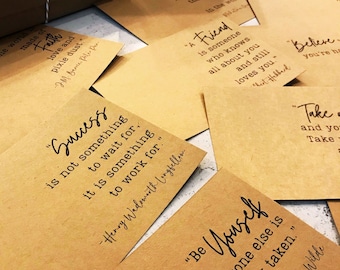 Faith
love and
pixie dust."
"A Friend
is someone
who knows
all about you
and still
loves you."
"Believe
you're
"Take
and you
Take
Success
is not something
to wait for,
it is something
to work for."
- Henry Wadsworth Longfellow
"Be Yourself
one else is
taken."
Wilde